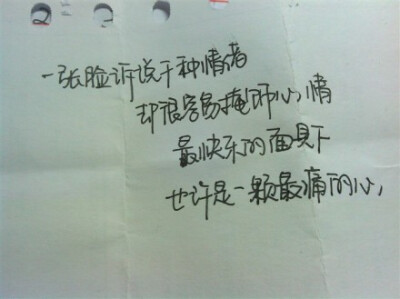 一张脸诉说千种情绪
却很容易掩饰心情
最快乐的面具下
也许是一颗最痛的心